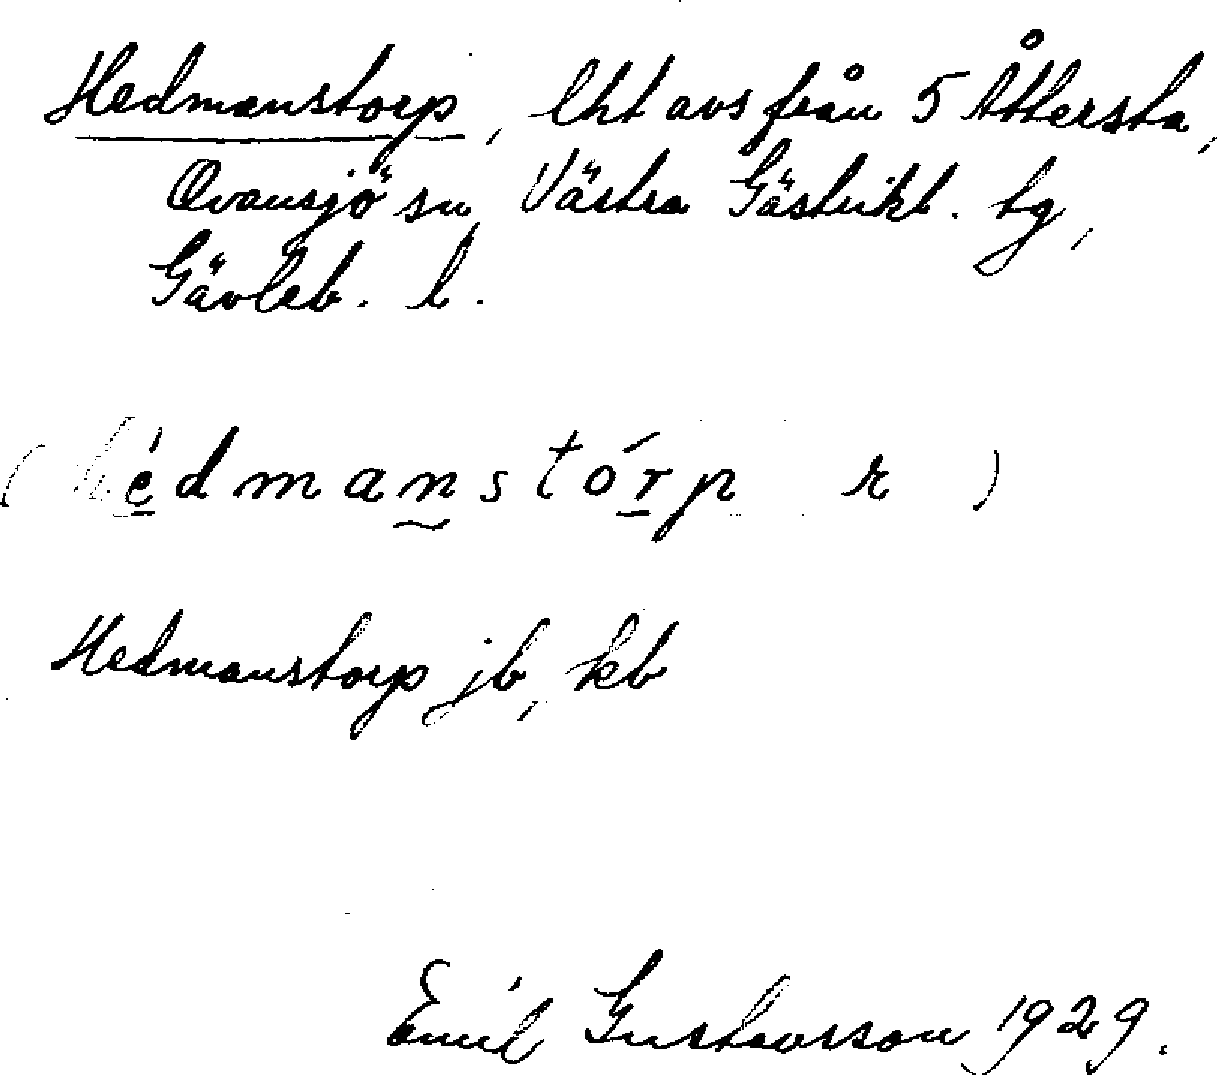 Hedmanstorp, lht avs från 5 Åttersta,
Ovansjö sn, Västra Gästrikl. tg,
Gävleb. l.
(hédmanstórp r)
Hedmanstorp jb, kb
Emil Gustavsson 1929.